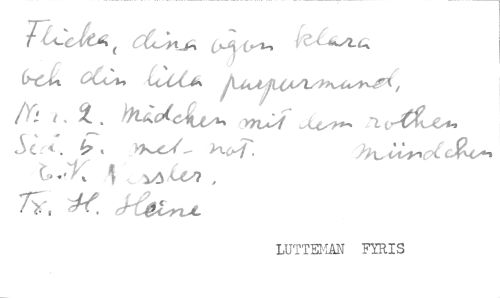 Flicka, dina ögon klara
och din lilla purpurmund,
N:r 2. Mädchen mit dem rothen
Sid. 5. mel-not. Mündchen
E.V.
Tx. H. Heine
LUTTEMAN FYRIS